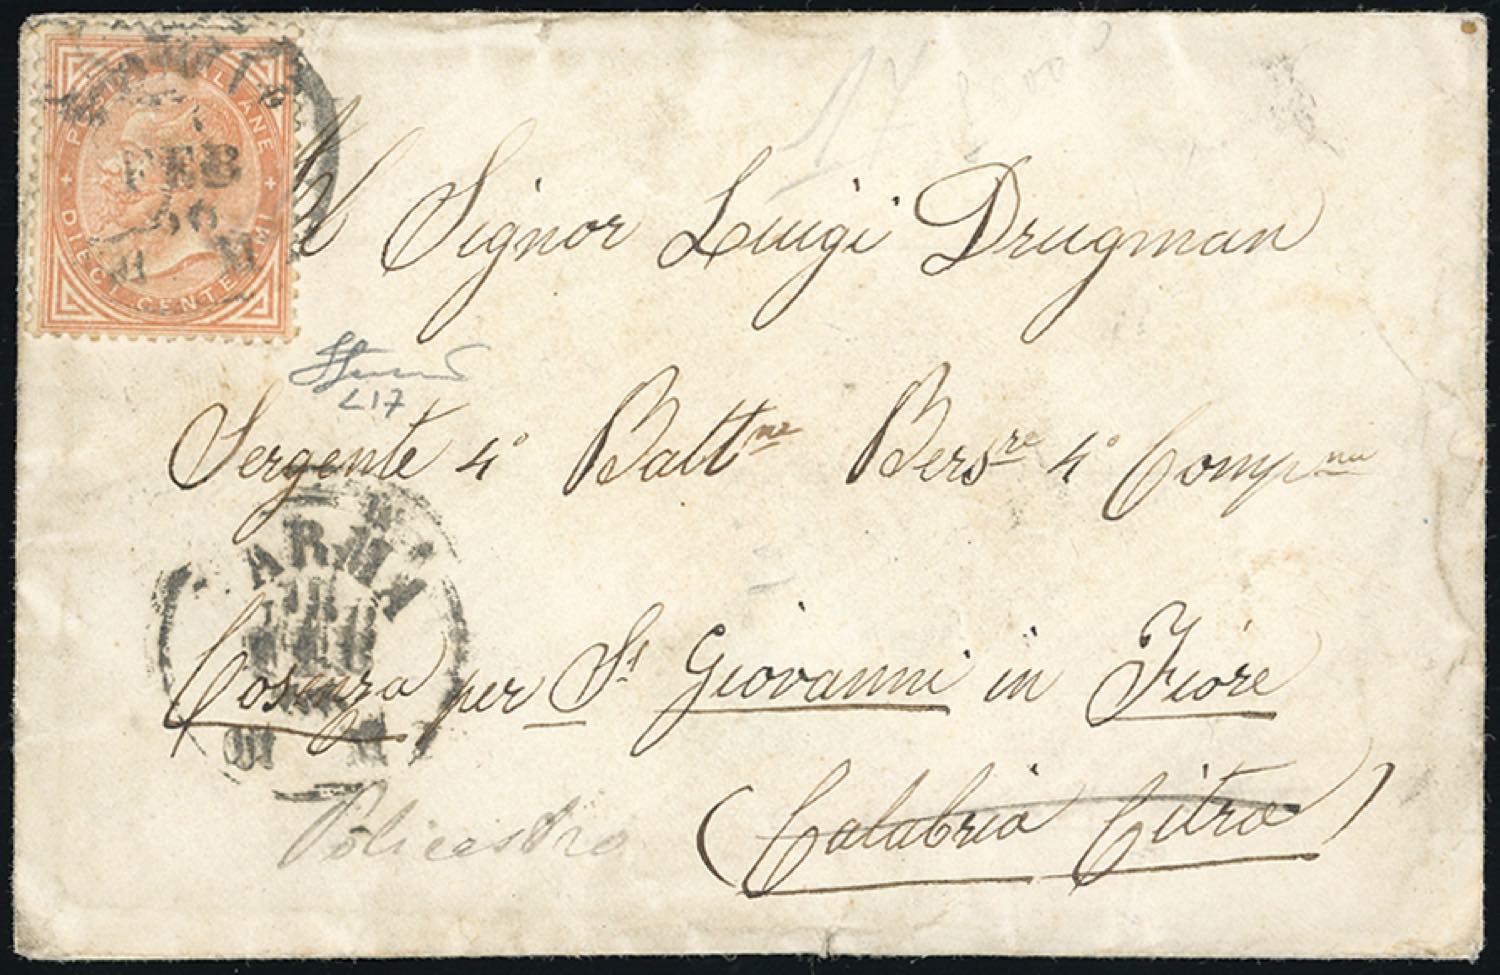 POSTE ITALIANE
DIECI CENTESIMI
FEB
66
M
Al Signor Luigi Drugman
L17
Sergente 4° Batt.ne Bers.re 4° Comp.nia
PARMA
FEB
M
Cosenza per S.t Giovanni in Fiore
Policastro
(Calabria Citra)